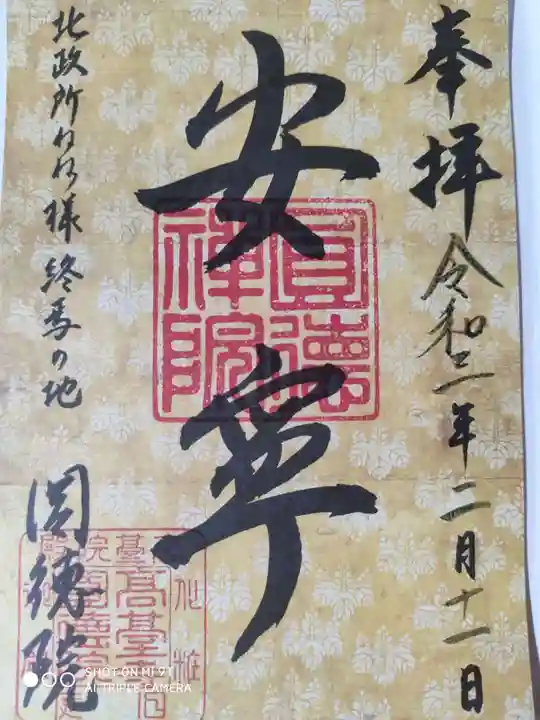 奉拝 令和三年二月十一日
安寧
圓徳禅院
北政所ねね様終焉の地
圓徳院
SHOT ON MI 9T
AI TRIPLE CAMERA